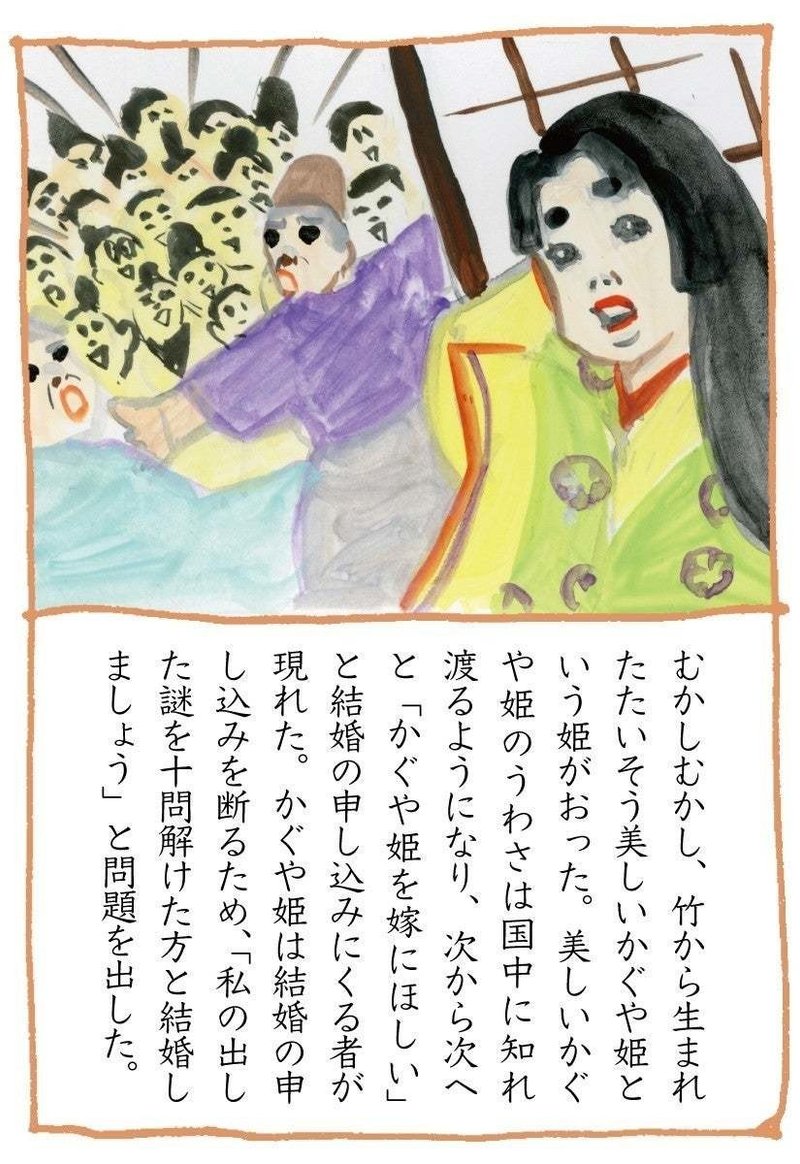 むかしむかし、竹から生まれ
たたいそう美しいかぐや姫と
いう姫がおった。美しいかぐ
や姫のうわさは国中に知れ
渡るようになり、次から次へ
と「かぐや姫を嫁にほしい」
と結婚の申し込みにくる者が
現れた。かぐや姫は結婚の申
し込みを断るため、「私の出し
た謎を十問解けた方と結婚し
ましょう」と問題を出した。